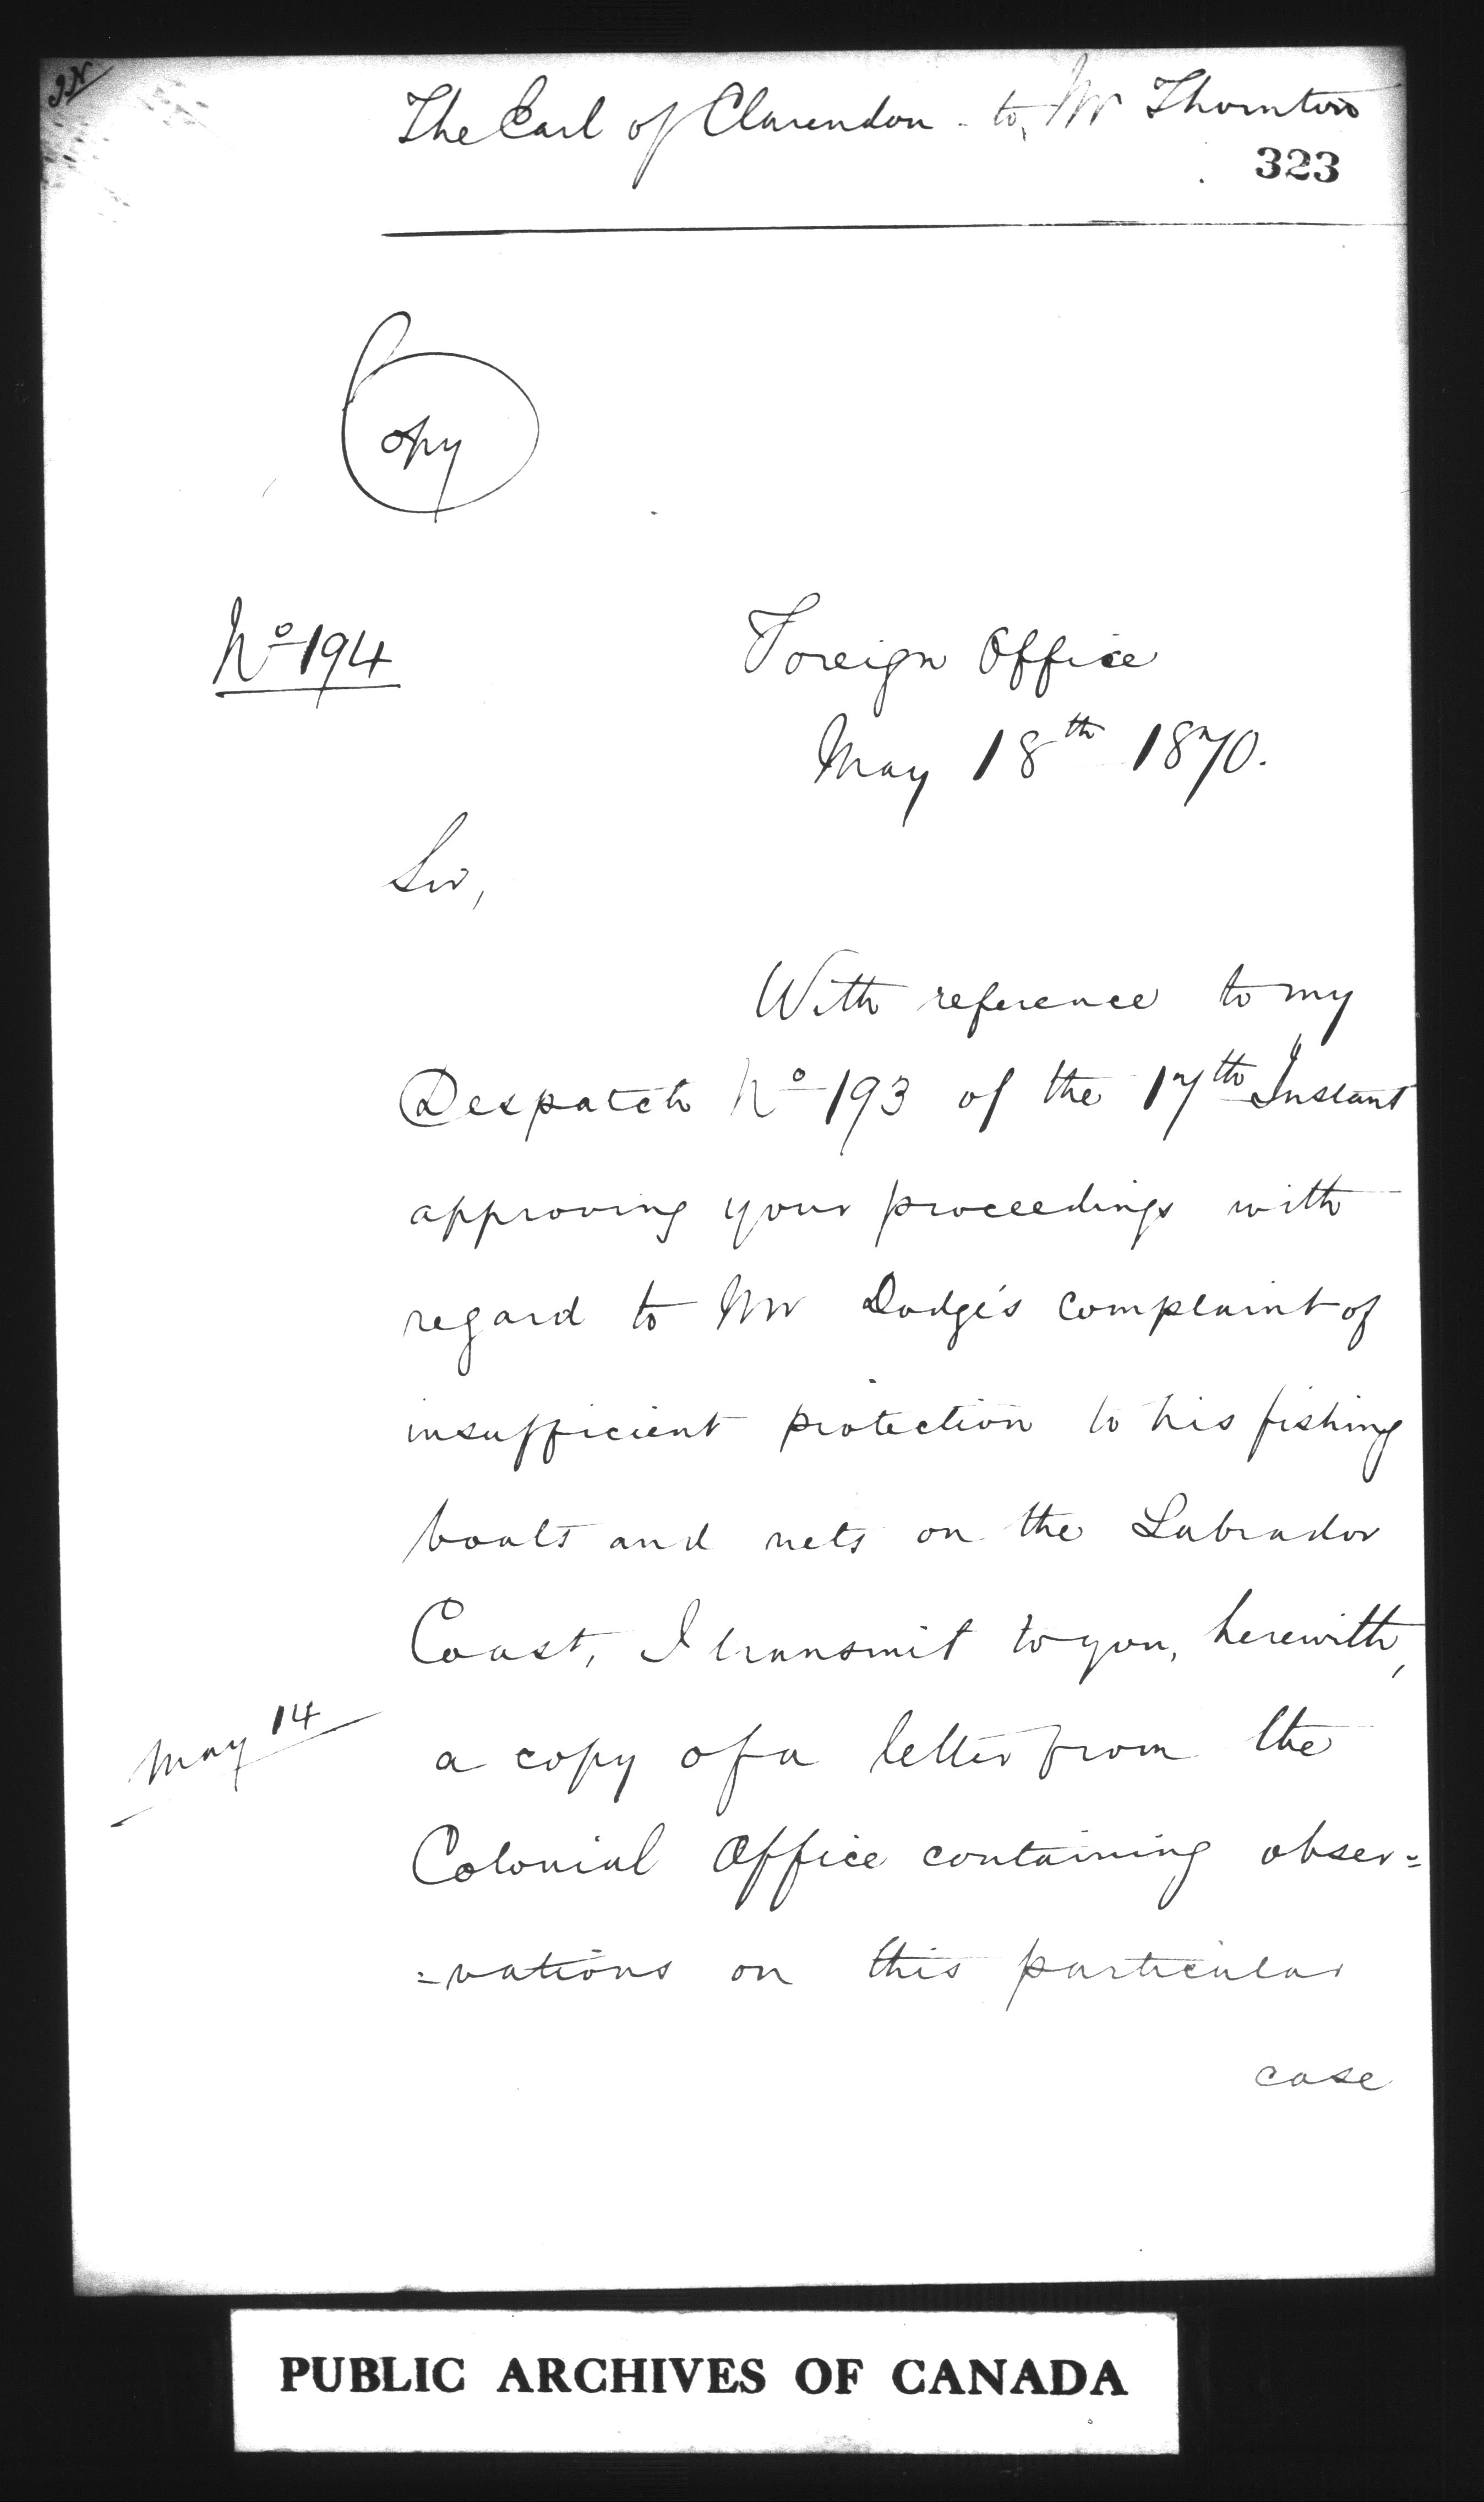 The Earl of Clarendon - to Mr Thornton
323
Copy
No 194
Foreign Office
May 18th 1870.
Sir,
With reference to my
Despatch No 193 of the 17th Instant
approving your proceedings with
regard to Mr Dodge's complaint of
insufficient protection to his fishing
boats and nets on the Labrador
Coast, I transmit to you, herewith,
May 14
a copy of a letter from the
Colonial Office containing obser=
=vations on this particular
case
PUBLIC ARCHIVES OF CANADA